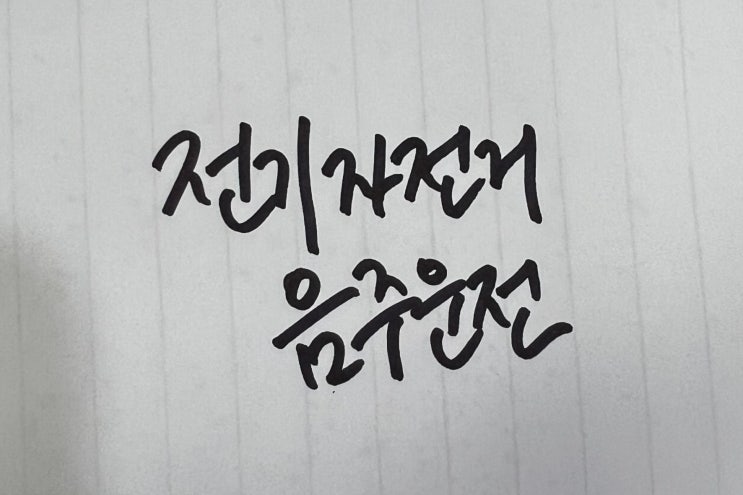 전기자전거
음주운전